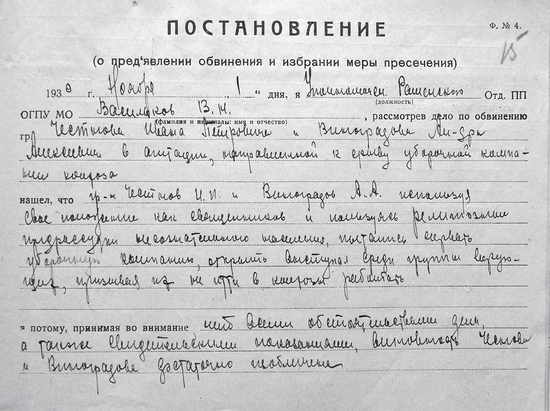 ПОСТАНОВЛЕНИЕ
Ф. № 4.
15
(о пред'явлении обвинения и избрании меры пресечения)
193 г. Ноября 1 " дня, я Уполномочен. Рашенского Отд. ПП
(должность)
ОГПУ МО Васильков В.Н. , рассмотрев дело по обвинению
(фамилия и инициалы: имя и отчество)
гр. Честнова Ивана Петровича и Виноградова Ал-дра
Алексеевича в агитации, направленной к срыву уборочной кампа-
нии колхоза
нашел, что гр-н Честнов И.П. и Виноградов А.А. используя
свое положение как священников и пользуясь религиозными
предрассудками несознательного населения, пытались сорвать
уборочную кампанию, открыто выступая среди группы верую-
щих, призывая их не идти в колхоз работать
я потому, принимая во внимание обстоятельствами дела,
а также свидетельскими показаниями, виновность Честнова
и Виноградова достаточно